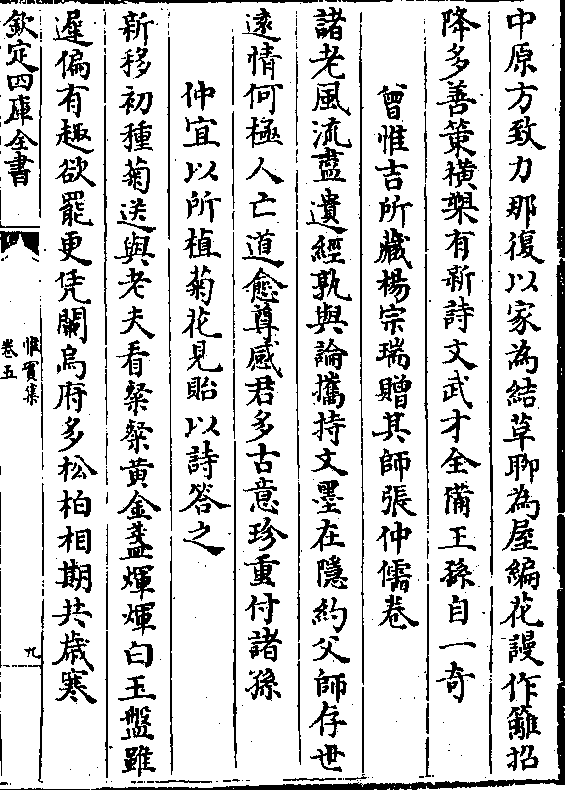 中原方致力那復以家為結草聊為屋編花謾作籬招
降多善策横槊有新詩文武才全備王孫自一奇
曾惟吉所藏楊宗瑞贈其師張仲儒卷
諸老風流盡遺經孰與論攜持文墨在隱約父師存世
逺情何極人亡道愈尊感君多古意珍重付諸孫
仲宜以所植菊花見貽以詩答之
新移初種菊送與老夫看粲粲黄金盞煇煇白玉盤雖
遲偏有趣欲罷更凭闌烏府多松柏相期共歳寒
欽定四庫全書
惟實集
卷五
九